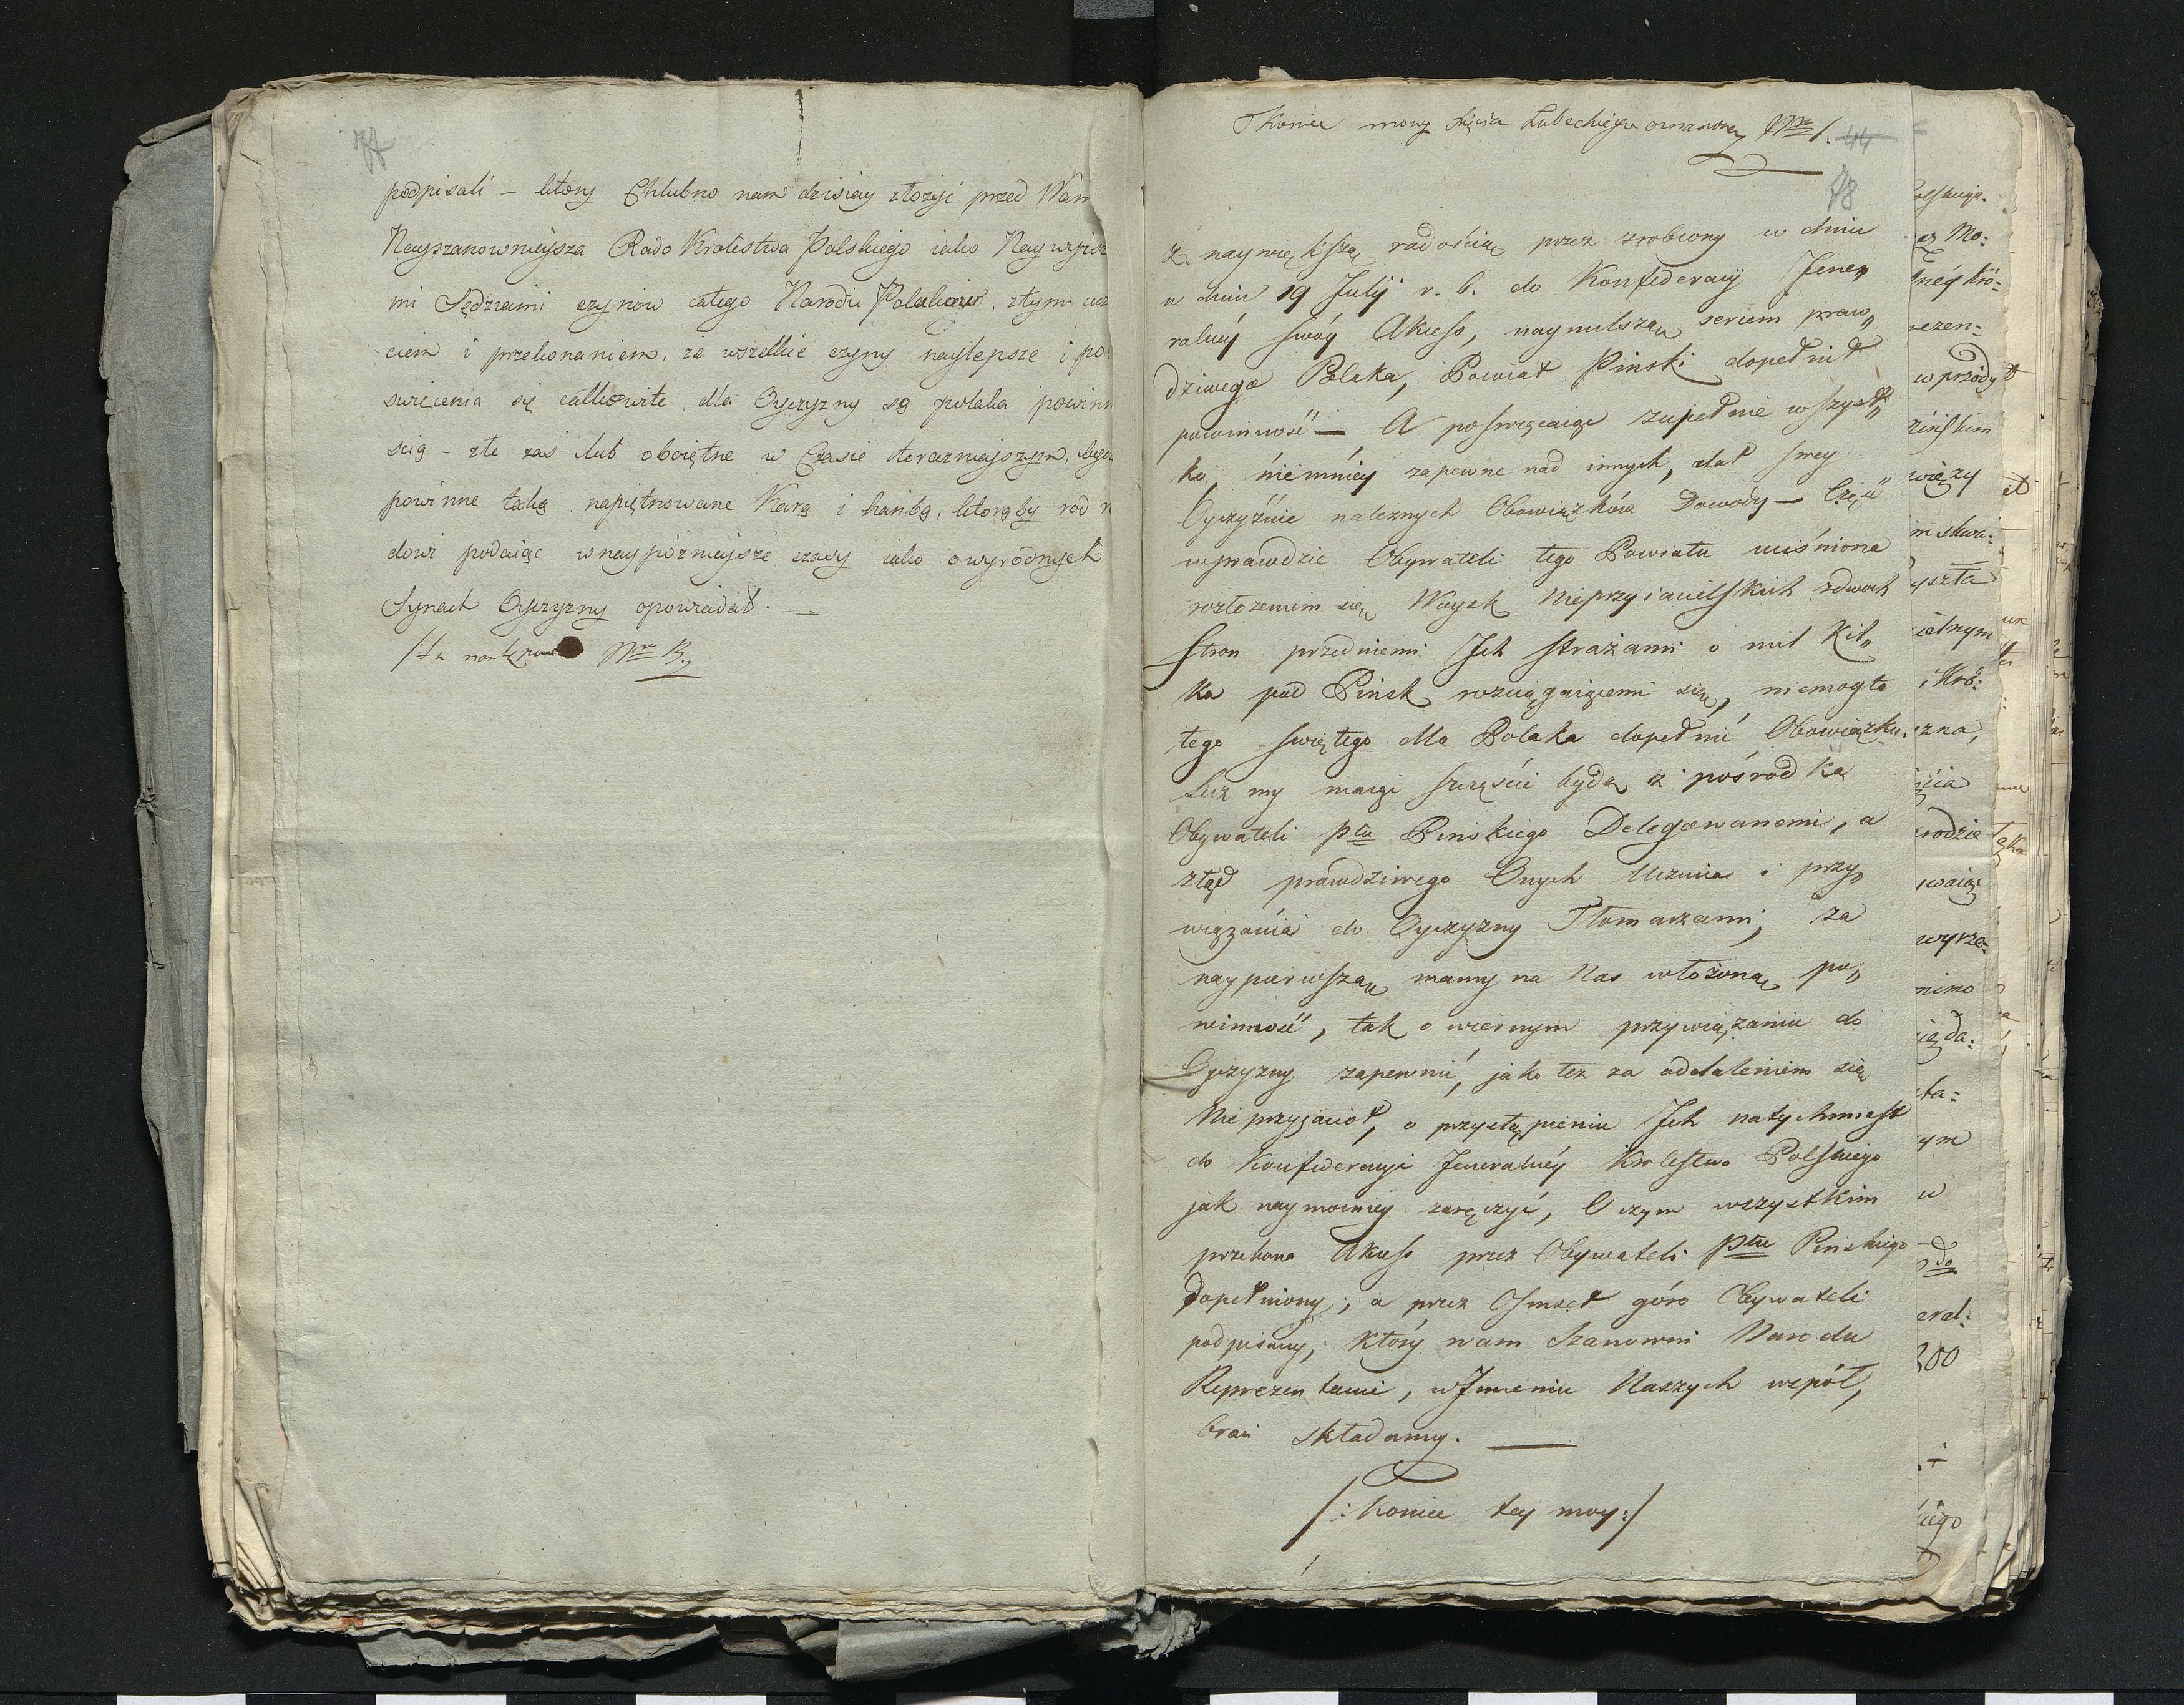 77
podpisali – który Chlubno nam dzisiay złożyć przed Wam
Nayszanownieysza Rado Krolestwa Polskiego iako Naywyższ
mi Sędziami czynow całego Narodu Polakow, z tym
ciem i przekonaniem, że wszelkie czyny naylepsze i po
swięcenia się całkowite dla Oyczyzny są polaka powinn
scią – złe zas lub oboiętne w Czasie terazniejszym, bydz
powinne taką napiętnowane Karą i hanbą, którąby rod n
dowi podaiąc w naypóznieysze czasy iako o wyródnych
Synach Oyczyzny opowiadał. —
/:tu następuie Nro B.
Koniec mowy Xięcia Lubeckiego oznaczoney Nro 1. 44
78
z naywiększą radością przez zrobiony w dniu
w dniu 19 Julij r. b. do Konfideracyi Jene„
ralnéy swóy Akcess, naymilszą sercem praw„
dziwego Polaka, Powiat Pinski dopełnił
powinność — A poswięcaiąc zupełnie wszyst„
ko, niemniéy zapewne nad innych, dał swey
Oyczyźnie należnych Obowiązków Dowody — Częsć
wprawdzie Obywateli tego Powiatu uciśniona
rozłożeniem się Woysk Nieprzyiacielskich zdwoch
Stron przedniemi Ich strażami o mil kil„
ka pod Pińsk rozciągaiącemi się, niemogła
tego świętego dla Polaka dopełnić Obowiązku.
Lecz my maiąc szczęście bydź z pośrodka
Obywateli Ptu Pinskiego Delegowanemi, a
ztąd prawdziwego Onych Uczucia i przy„
wiązania do Oyczyzny Tłomaczami; za
naypierwszą mamy na Nas włożoną po„
winność, tak o wiernym przywiązaniu do
Oyczyzny zapewnić, jako też za oddaleniem się
Nieprzyjaciół, o przystąpieniu Ich natychmiast
do Konfideracyi Jeneralnéy Krolestwa Polskiego
jak naymocniey zaręczyć, O czym wszystkim
przekona Akcess przez Obywateli Ptu Pinskiego
dopełniony; a przez Osmset góro Obywateli
podpisany; który wam Szanowni Narodu
Reprezentanci, w Imieniu Naszych współ,
braci składamy. —
/: Koniec tey mowy :/